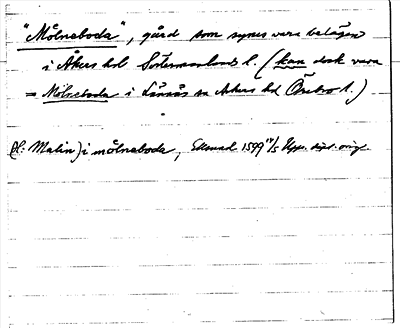 "Mölneboda", gård som synes vara belägen
i Åkers hd Södermanland l. (kan dock vara
= Mölneboda i Lännäs sn Askers hd Örebro l.)
(h. Malin) i mölneboda, 1599 Upps. dipl. orig.